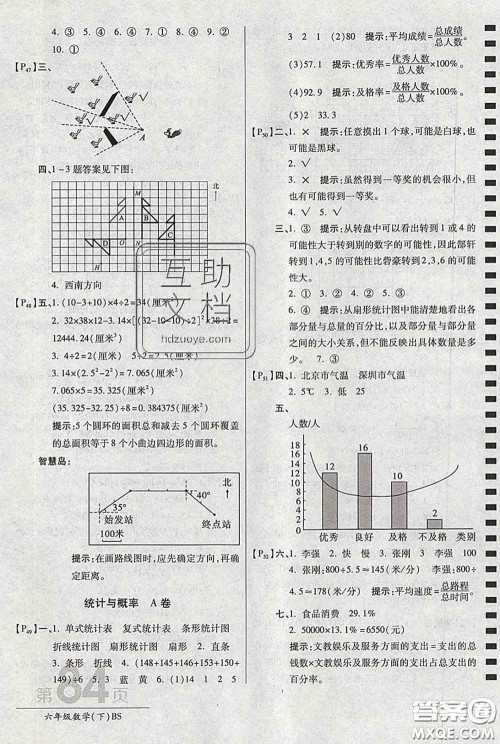 3. ④ 4. ④ 5. ③ 6. ③ 7. ② 8. ③ 9. ②
10. ①
【P47】三、
A
四、1~3题答案见下图：
北
M
A
B
D
C
O
N
4. 西南方向
【P48】五、1. (10-3+10)×4÷2=34(厘米²)
2. 32×38×12-[32×38-(32-10-10)×(38-10-10)]×12=
12444.24(厘米³)
3. 4÷2=2 5÷2=2.5
4. 14×(2.5²-2²)=7.065(厘米²)
7.065×5=35.325(厘米²)
(35.325-32.5)÷8=0.384375(厘米²)
提示：5个圆环的面积总和减去5个圆环覆盖
的总面积等于8个小曲边四边形的面积。
智慧岛：
北
35°
40°
始发站
100米
终点站
提示：在画路线图时，应先确定方向，再确
定距离。
统计与概率 A卷
【P49】一、1. 单式统计表 复式统计表 条形统计图
折线统计图 扇形统计图 2. 直条
3. 条形 折线 扇形 4. (148+145+146+153+150+
149)÷6 5. 3 蓝 黄 6. (1) 40 152 144
3 2 1 (2)80 提示：平均成绩=总成绩/总人数
(3)57.1 提示：优秀率=优秀人数/总人数×100%。
(4)92.9 提示：及格率=及格人数/总人数×100%。
(5)2 33.3
【P50】二、1. × 提示：任意摸出1个球，可能是白球，也
可能是黑球。
2. √
3. × 提示：虽然得到一等奖的机会很小，但
也可能得到一等奖。
4. √ 5. √
三、1. ③ 提示：从转盘中可以看出转到1或4的
可能性大于转到别的数字的可能性，因此部轩
转到1或4的可能性比砻豪转到2,3,6的可能
性大。
2. ① 3. ② 4. ③ 5. ②
6. ③ 提示：从扇形统计图中能清楚地看出各
部分量与总量的百分比，以及部分与部分量之间
的大小关系，但不能反映出具体数量的多少。
7. ③
【P51】四、1. 北京市气温 深圳市气温
2. 5℃ 3. 低 25
五、
人数/人
12
16
10
2
优秀 良好 及格 不及格 类别
【P52】六、1. 李强 2. 快 慢 3. 张刚 4. 李强
5. 张刚：800÷4.5≈178(米/分) 李强：800÷
4.5≈178(米/分) 提示：平均速度=总路程/总时间
七、1. 食品消费 29.1%
2. 50000×13.1%=6550(元)
提示：文教娱乐及服务方面的支出=支出的
总钱数×文教娱乐及服务方面的支出占支出
总钱数的百分比。
第84页
六年级数学(下)BS
互助文档
hdzuoye.com
答案圈
MXQE.COM